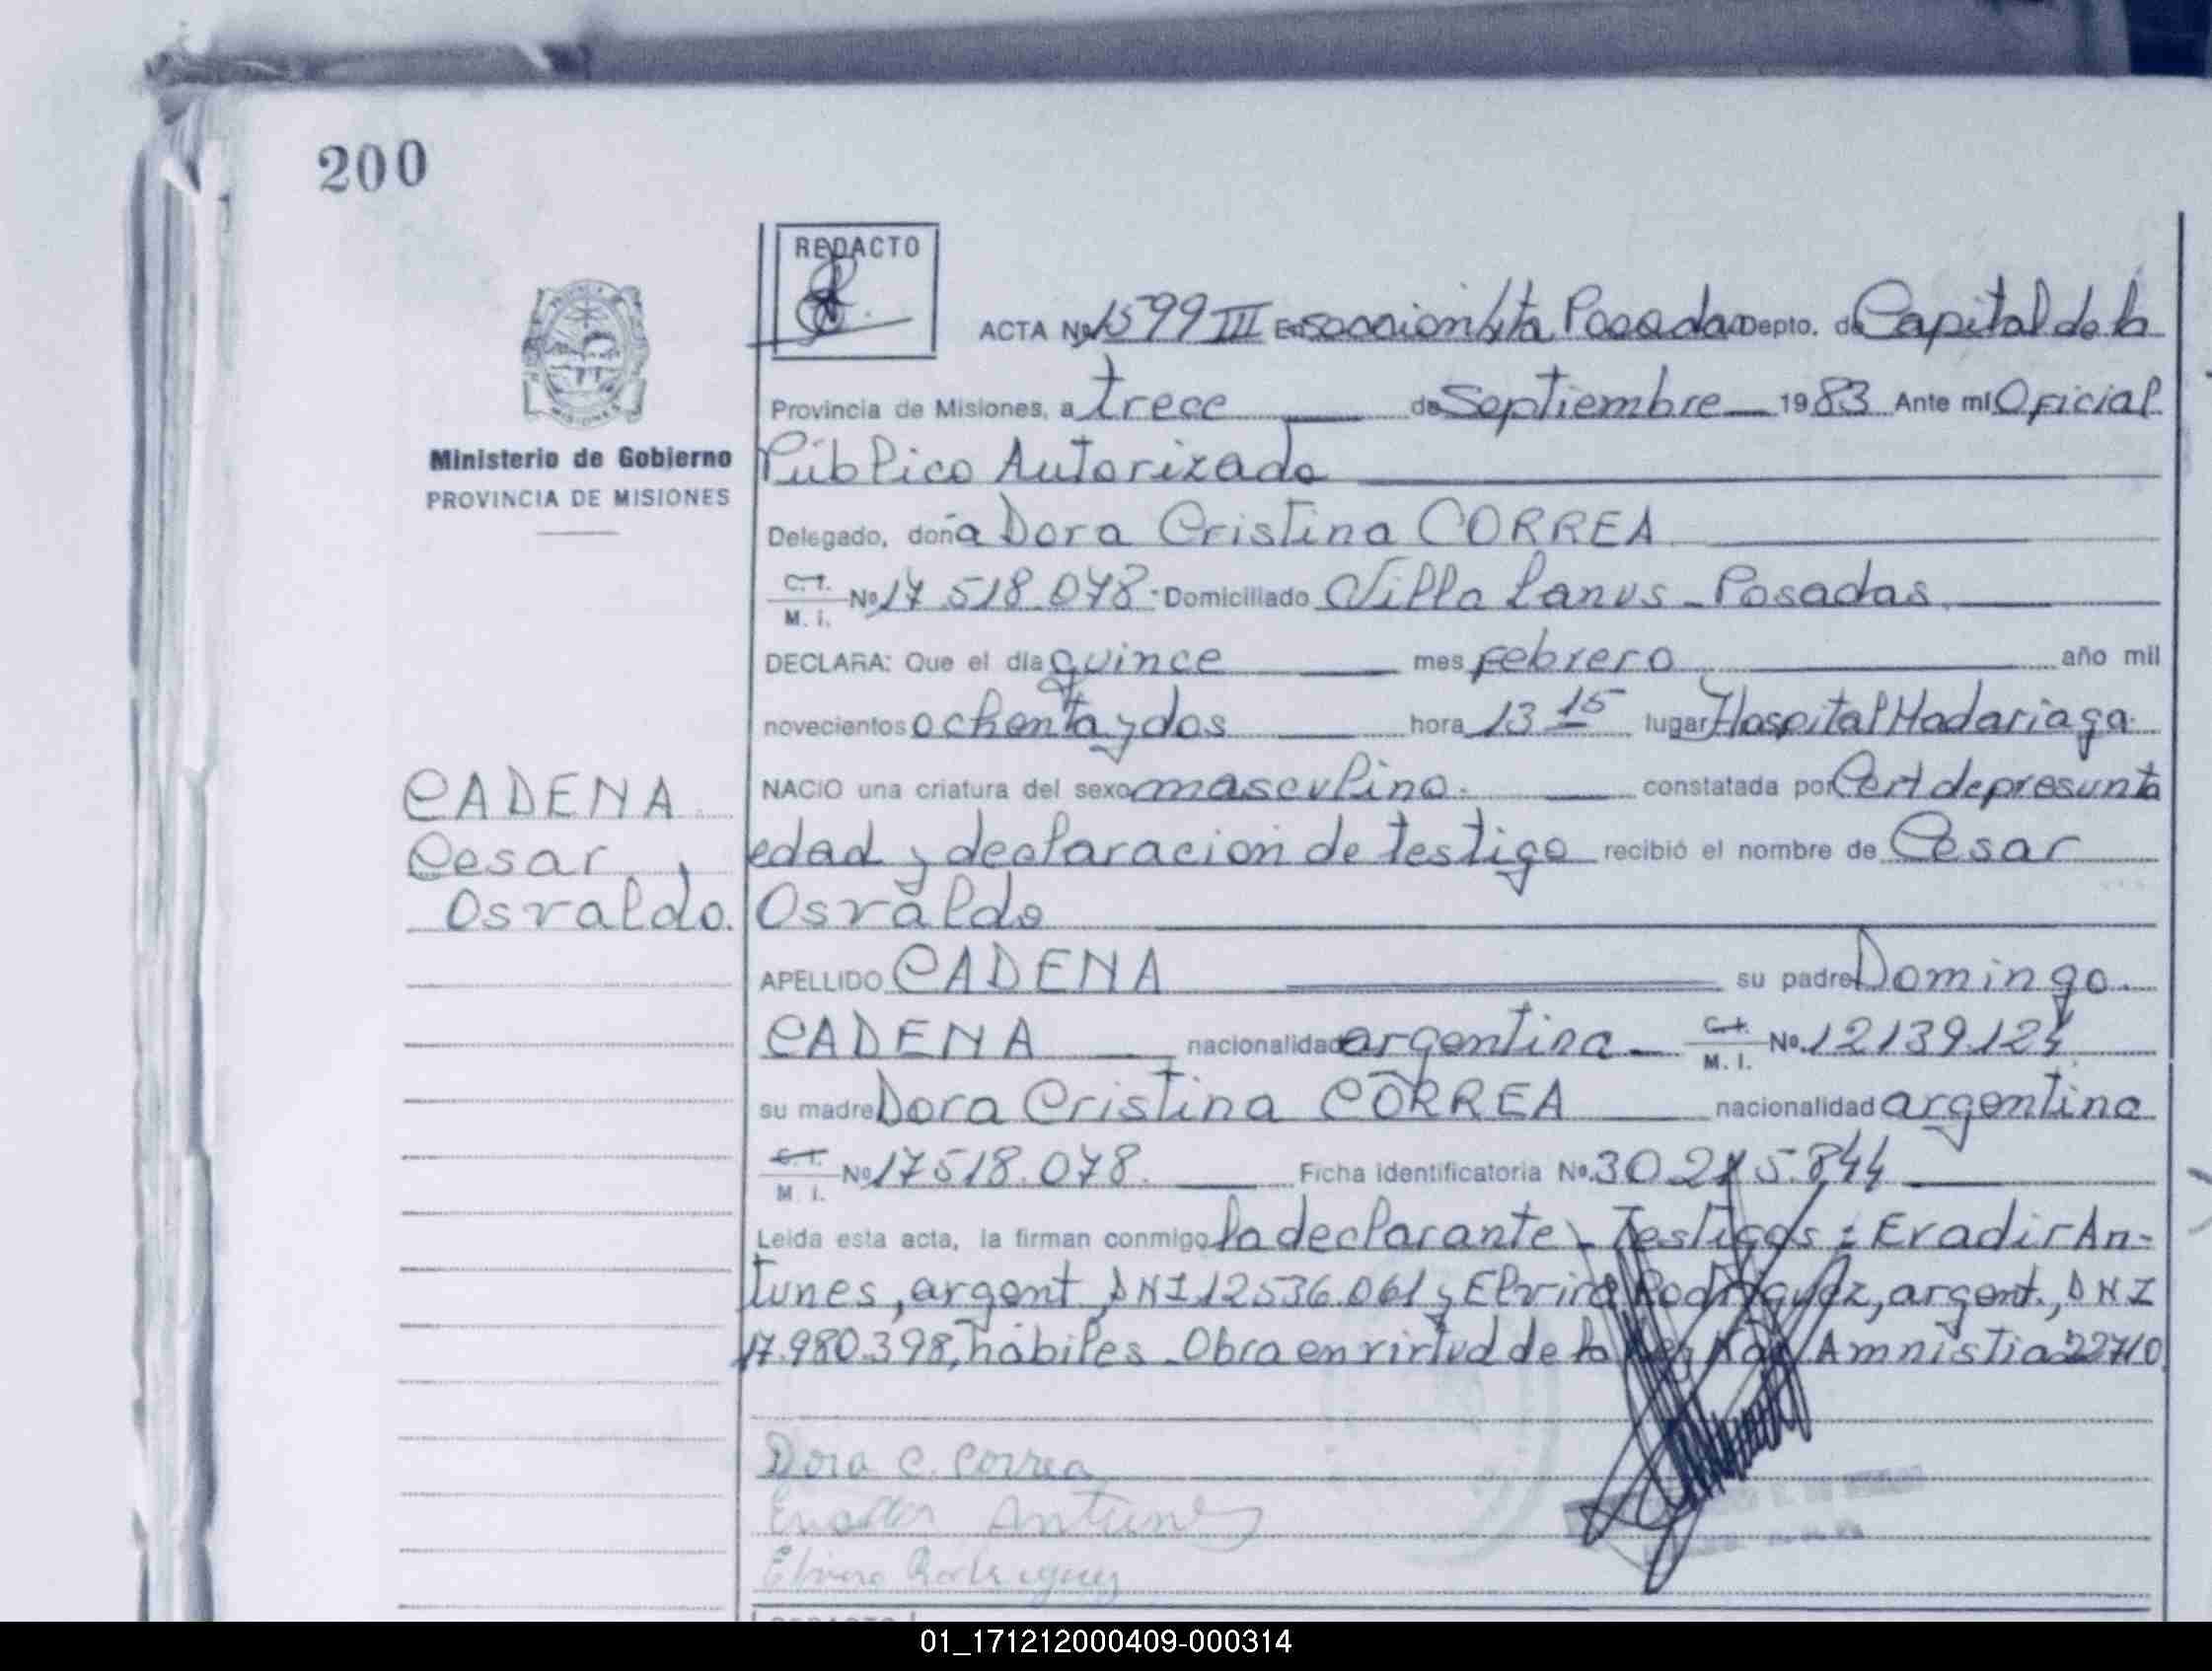 200
REDACTO
ACTA Nº 1599 III En seccion 6ta Posadas Depto. de Capital de la
Provincia de Misiones, a trece de Septiembre 1983 Ante mi Oficial
Ministerio de Gobierno
Público Autorizado
PROVINCIA DE MISIONES
Delegado, doña Dora Cristina CORREA
C.I. M.I. Nº 17.518.078. Domiciliado Villa Lanus - Posadas
DECLARA: Que el día quince mes febrero año mil
novecientos ochenta y dos hora 13 15 lugar Hospital Madariaga.
NACIO una criatura del sexo masculino. constatada por Cert de presunta
CADENA
Cesar
Osvaldo.
edad y declaracion de testigo recibió el nombre de Cesar
Osvaldo
APELLIDO CADENA su padre Domingo
CADENA nacionalidad argentina C.I. M.I. Nº 12139124
su madre Dora Cristina CORREA nacionalidad argentina
C.I. M.I. Nº 17518.078. Ficha identificatoria Nº 30215.844
Leida esta acta, la firman conmigo la declarante - Testigos: Eradir An-
tunes, argent, DNI 12536.061 y Elvira Rodriguez, argent., DNI
17.980.398, habiles. Obra en virtud de la Ley Nac Amnistia 22710
Dora C. Correa
Eradir Antunes
Elvira Rodriguez
01_171212000409-000314